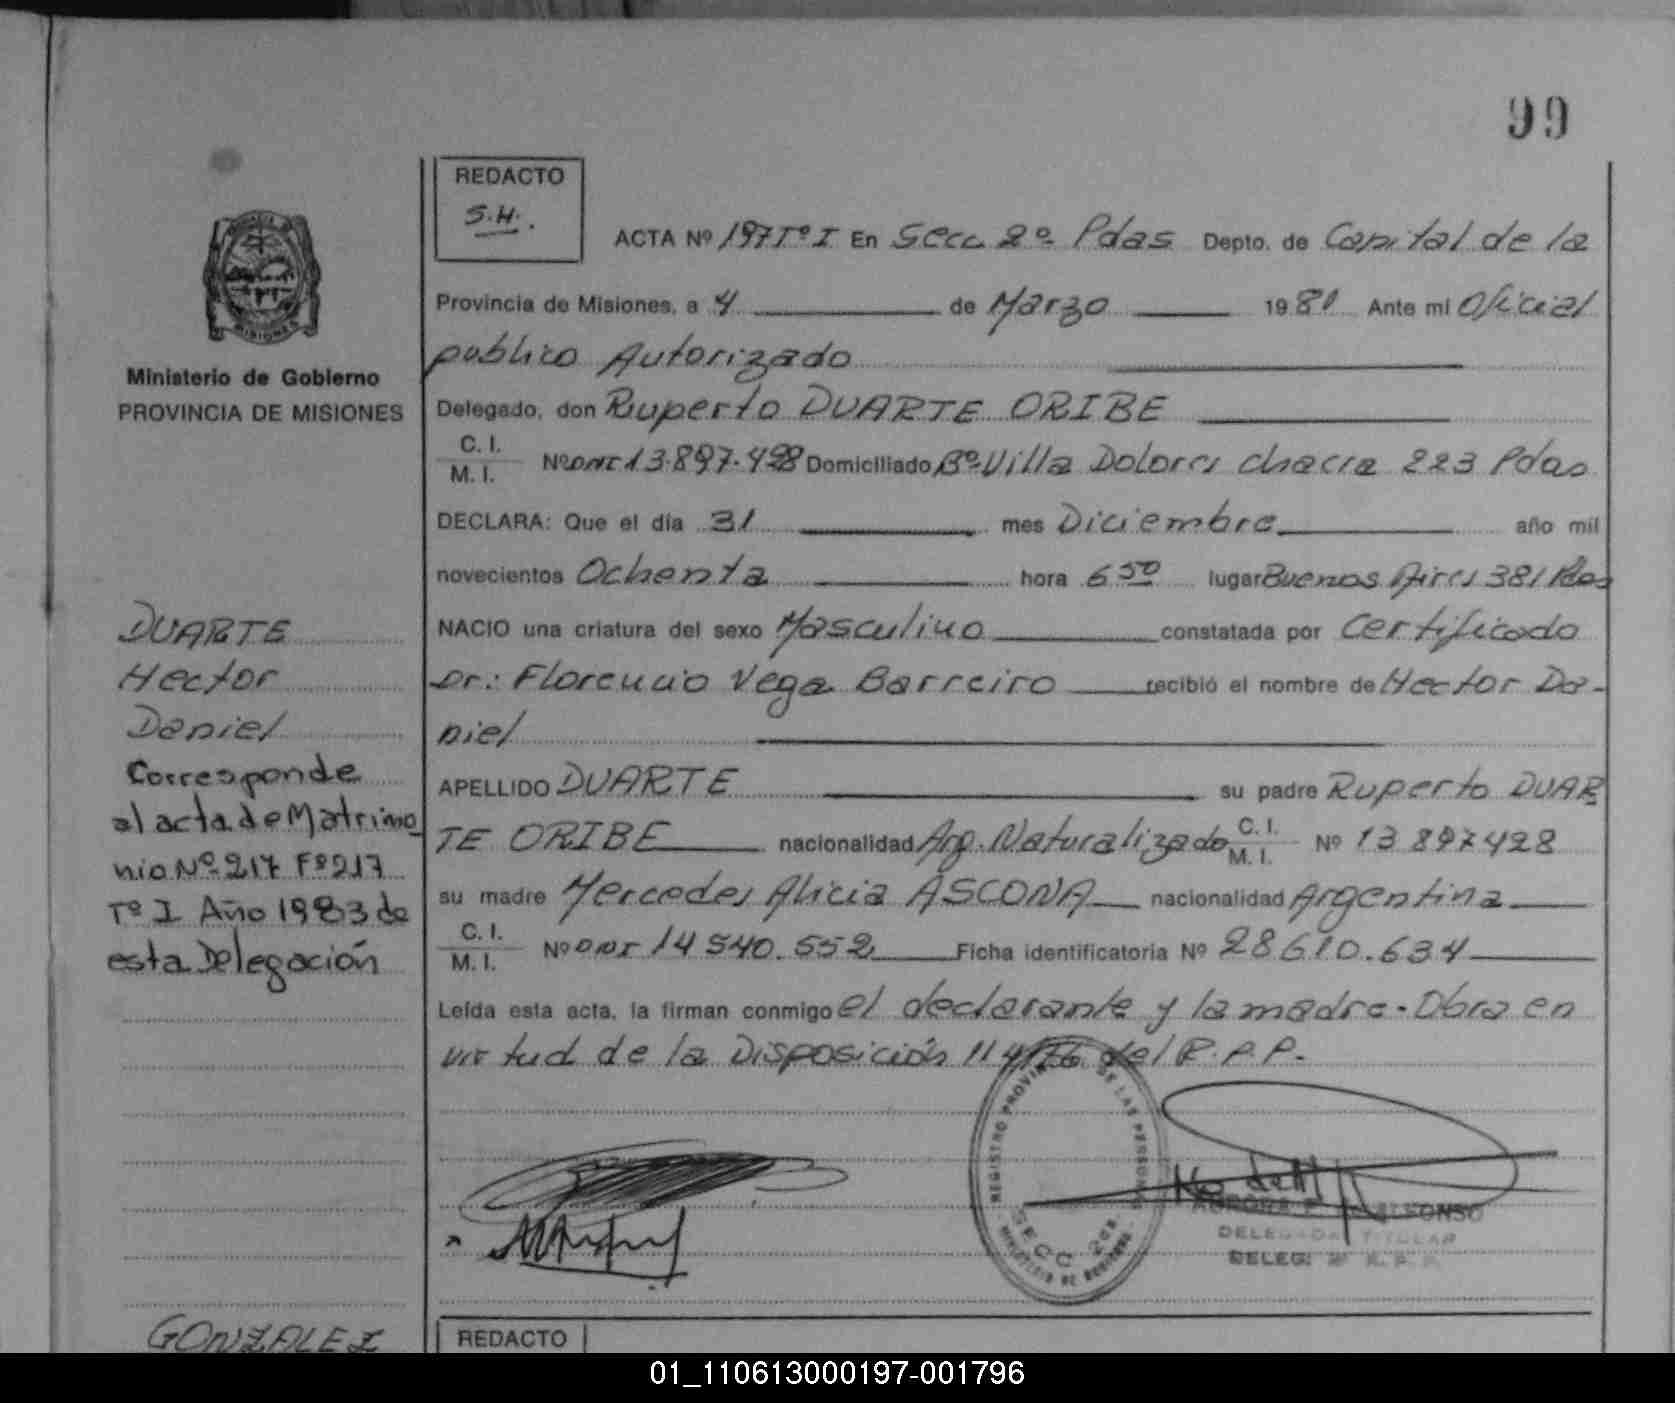 99
REDACTO
S.H.
ACTA Nº 197 Tº I En Secc. 2º Pdas Depto. de Capital de la
Provincia de Misiones, a 4 de Marzo 1981 Ante mi Oficial
publico Autorizado
Ministerio de Gobierno
PROVINCIA DE MISIONES
Delegado, don Ruperto DUARTE ORIBE
C. I.
M. I. Nº DNI 13.897.428 Domiciliado Bº Villa Dolores chacra 223 Pdas
DECLARA: Que el día 31 mes Diciembre año mil
novecientos Ochenta hora 6 50 lugar Buenos Aires 381 Pdas
NACIO una criatura del sexo Masculino constatada por Certificado
Dr.: Florencio Vega Barreiro recibió el nombre de Hector Da-
niel
APELLIDO DUARTE su padre Ruperto DUAR
TE ORIBE nacionalidad Arg. Naturalizado C. I. M. I. Nº 13 897428
su madre Mercedes Alicia ASCONA nacionalidad Argentina
C. I.
M. I. Nº DNI 14 540.552 Ficha identificatoria Nº 28610.634
Leída esta acta, la firman conmigo el declarante y la madre. Obra en
virtud de la Disposición 114/76 del R.P.P.
DUARTE
Hector
Daniel
Corresponde
al acta de Matrimo
nio Nº 217 Fº 217
Tº I Año 1983 de
esta Delegación
REGISTRO PROVIN DE LAS PERSONAS
SECC 2da.
MINISTERIO DE GOBIERNO
ALFONSO
DELEGADA TITULAR
DELEG. 2ª R. P. P.
GONZALEZ
REDACTO
01_110613000197-001796